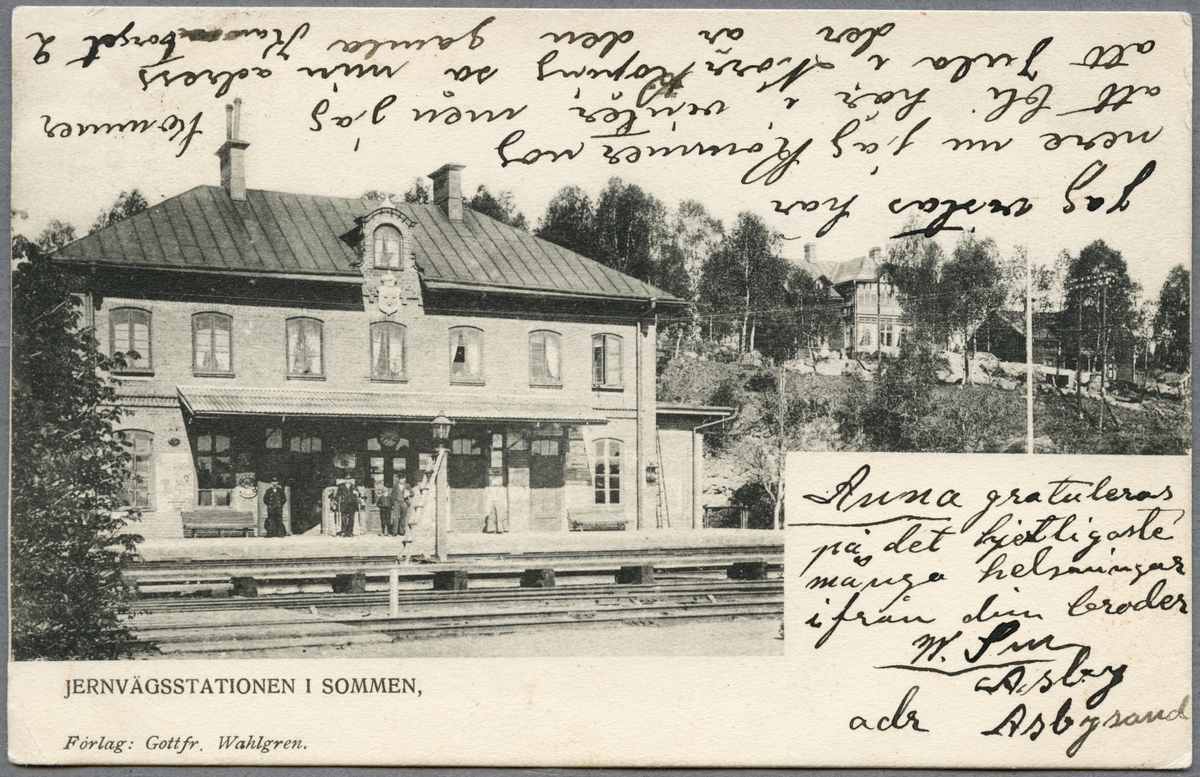 Jag vistas här
nere nu jag kommer nog
att bli här i vinter men jag kommer
att Jula i Norrköping så min adress
der är den gamla 2
Anna gratuleras
på det hjertligaste
många helsningar
ifrån din broder
W. Sm
Asby
adr Asbysand
JERNVÄGSSTATIONEN I SOMMEN,
Förlag: Gottfr. Wahlgren.